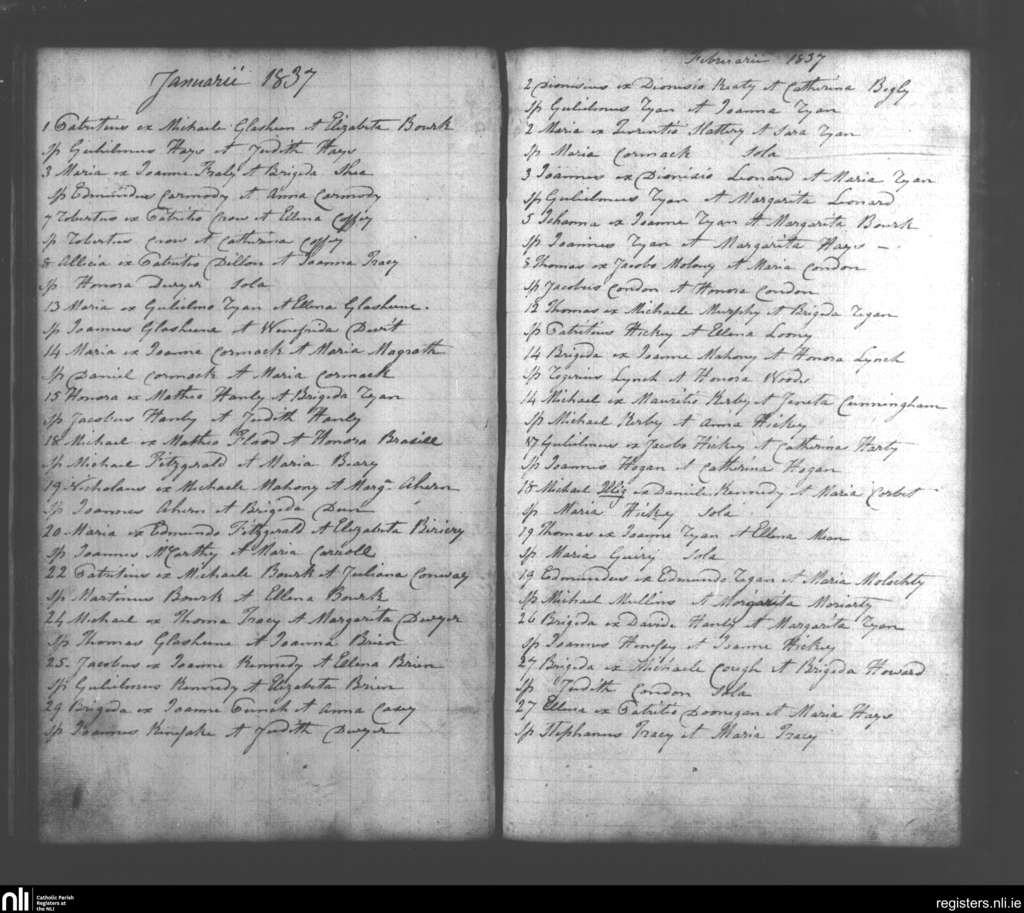 Januarii 1837
1 Patritius ex Michaele Glasheen et Elizabeta Bourk
Sp Gulielmus Hays et Judith Hays
3 Maria ex Joanne Healy et Brigida Shea
Sp Edmundus Carmody et Anna Carmody
7 Robertus ex Patritio Crow et Ellena Coffey
Sp Robertus Crow et Catherina Coffey
8 Allicia ex Patritio Dillon et Joanna Tracy
Sp Honora Dwyer Sola
13 Maria ex Gulielmo Ryan et Ellena Glasheene.
Sp Joannes Glasheene et Winefrida Dwit
14 Maria ex Joanne Cormack et Maria Magrath
Sp Daniel Cormack et Maria Cormack
15 Honora ex Matheo Hanly et Brigida Ryan
Sp Jacobus Hanly et Judith Hanly
18 Michael ex Matheo Flood et Honora Brasill
Sp Michael Fitzgerald et Maria Beary
19 Nicholaus ex Michaele Mahony et Marg. Ahern
Sp Joannes Ahern et Brigida Dun
20 Maria ex Edmundo Fitzgerald et Elizabeta
Sp Joannes McCarthy et Maria Carroll
22 Patritius ex Michaele Bourk et Juliana Conway
Sp Martinus Bourk et Ellena Bourk
24 Michael ex Thoma Tracy et Margarita Dwyer
Sp Thomas Glasheene et Joanna Brien
25. Jacobus ex Joanne Kennedy et Ellena Brien
Sp Gulielmus Kennedy et Elizabeta Brien
29 Brigida ex Joanne et Anna Casey
Sp Joannes et Judith Dwyer
Februarii 1837
2 Dionisius ex Dionisio Keaty et Catherina Begly
Sp Gulielmus Ryan et Joanna Ryan
2 Maria ex Laurentio Slattery et Sara Ryan
Sp Maria Cormack Sola
3 Joannes ex Dionisio Leonard et Maria Ryan
Sp Gulielmus Ryan et Margarita Leonard
5 Johanna ex Joanne Ryan et Margarita Bourk
Sp Joannes Ryan et Margarita Hays –
8 Thomas ex Jacobo Molony et Maria Condon
Sp Jacobus Condon et Honora Condon
12 Thomas ex Michaele Murphy et Brigida Regan
Sp Patritius Hickey et Ellena Loony
14 Brigida ex Joanne Mahony et Honora Lynch
Sp Rogerius Lynch et Honora Woods
14 Michael ex Mauritio Kerby et Joneta Cunningham
Sp Michael Kerby et Anna Hickey
17 Gulielmus ex Jacobo Hickey et Catherina Harty
Sp Joannes Hogan et Catherina Hogan
18 Michael Illig ex Daniele Kennedy et Maria Corbet
Sp Maria Hickey Sola
19 Thomas ex Joanne Ryan et Ellena Mean
Sp Maria Guiry Sola
19 Edmundus ex Edmundo Regan et Maria Molochty
Sp Michael Mullins et Margarita Moriarty
26 Brigida ex Davide Hanly et Margarita Ryan
Sp Joannes et Joanne Hickey
27 Brigida ex Michaele Cough et Brigida Howard
Sp Judith Condon Sola
27 Ellena ex Patritio Doonegan et Maria Hays
Sp Stephanus Tracy et Maria Tracy
nli
Catholic Parish
Registers at
the NLI
registers.nli.ie